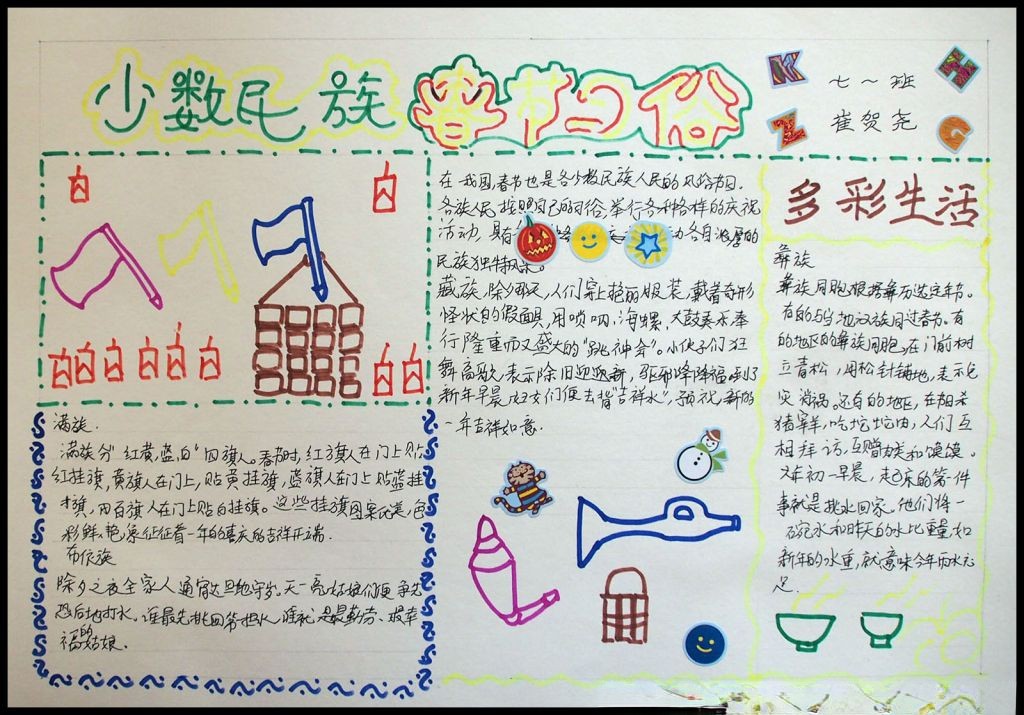 少数民族春节习俗
七一班
崔贺尧
K
H
Z
G
在我国春节也是各少数民族人民的风俗节日.
各族人民按照自己的习俗,举行各种各样的庆祝
活动,具有 各自浓厚的
民族独特风采。
藏族,除夕那天,人们穿上艳丽服装,戴着奇形
怪状的假面具,用唢呐,海螺,大鼓奏乐奉
行隆重而又盛大的"跳神会"。小伙子们狂
舞高歌,表示除旧迎新,驱邪降福,到了
新年早晨,妇女们便去背"吉祥水",预祝新的
一年吉祥如意.
满族.
满族分"红黄,蓝,白"四旗人。春节时,红旗人在门上贴
红挂旗,黄旗人在门上,贴黄挂旗,蓝旗人在门上贴蓝挂
旗,而白旗人在门上贴白挂旗。这些挂旗图案优美,色
彩鲜艳,象征着一年的喜庆的吉祥开端.
布依族
除夕之夜全家人通宵达旦地守岁。天一亮,姑娘们便争先
恐后地打水。谁最先挑回第一担水,谁就是最勤劳、最幸
福的姑娘.
多彩生活
彝族
彝族同胞根据彝历选定年节。
有的与当地汉族同过春节。有
的地区的彝族同胞,在门前树
立青松,用松针铺地,表示免
灾消祸。还有的地区,在相杀
猪宰羊,吃坨坨肉,人们互
相拜访,互赠肉类和馍馍。
大年初一早晨,起床的第一件
事就是挑水回家。他们将一
碗水和昨天的水比重量,如
新年的水重,就意味今年雨水充
足.